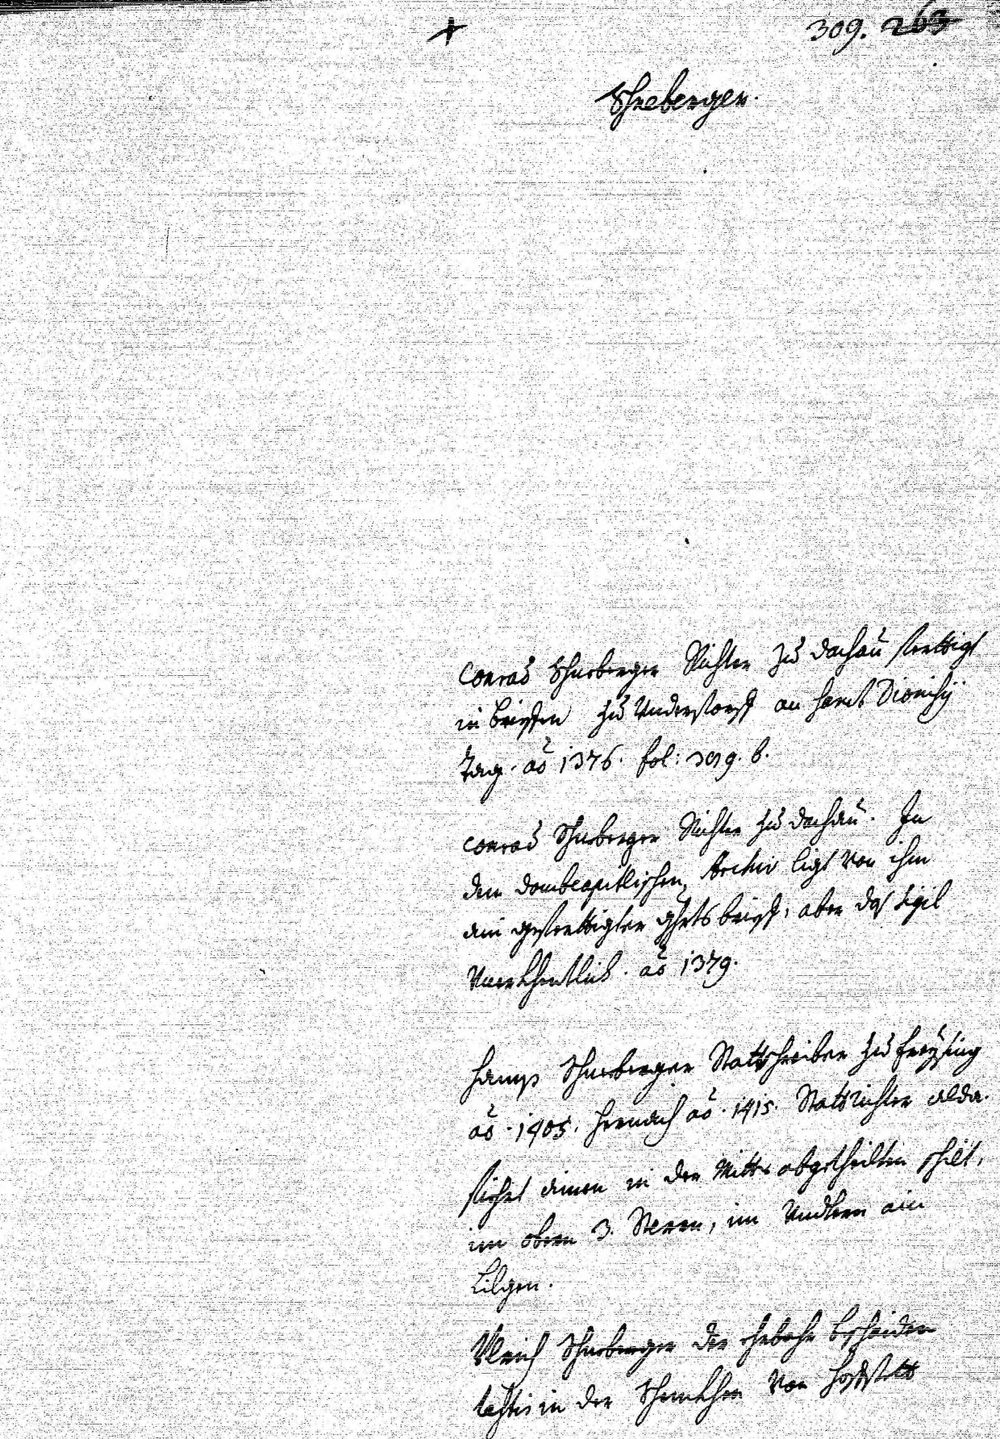 309. 263
Schneberger.
Conrad Schneberger Richter zu Dachau ferttigt
in brieffen zu Understorff an Sanct Dionisÿ
Tag. aō 1376. fol: 309. b.
Conrad Schneberger Richter zu Dachau. In
dem dombcapitlischen Archiv ligt von ihm
ain geferttigter brieff, aber das Sigil
Unerkhentlich. aō 1379.
Hanns Schneberger Stattschreiber zu Freÿsing
aō. 1405. hernach aō. 1415. Stattrichter alda.
fiehrt ainen in der Mitte abgetheilten schilt,
im obern 3. Stern, im Undtern ain
Lilgen.
Ulrich Schneberger der bescheiden
in der von